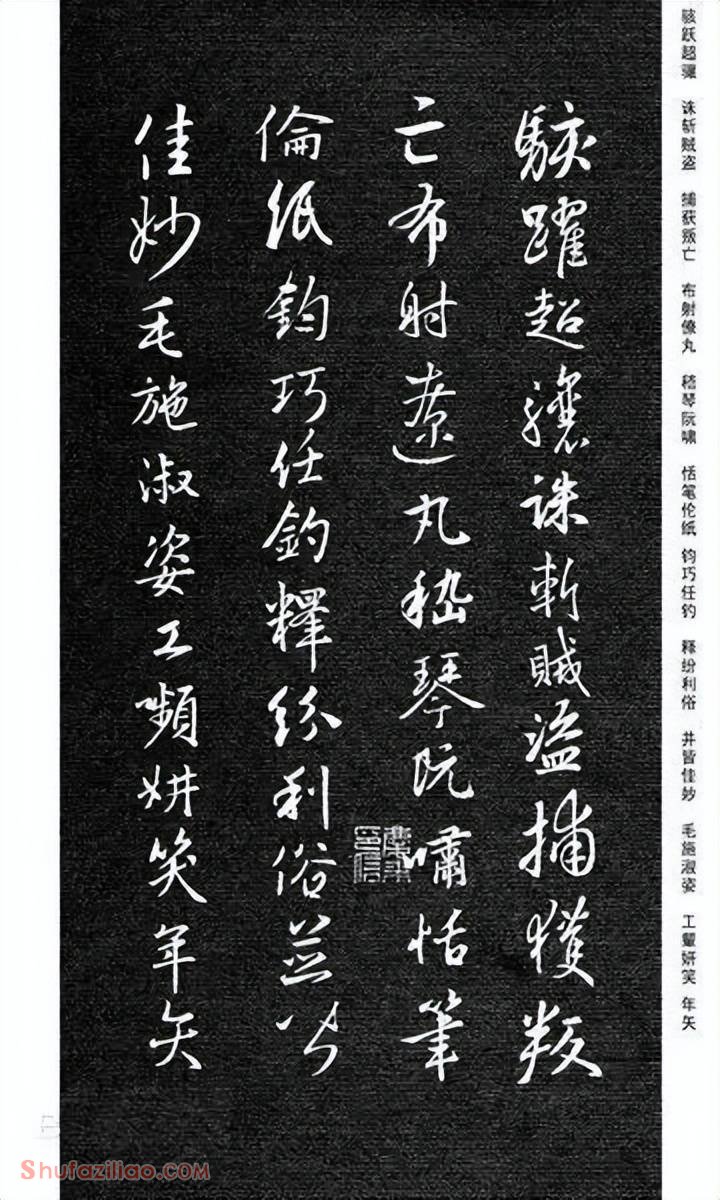 駭躍超驤誅斬賊盜捕獲叛
亡布射遼丸嵇琴阮嘯恬筆
倫紙鈞巧任釣釋紛利俗並皆
佳妙毛施淑姿工嚬妍笑年矢
骇跃超骧 诛斩贼盗 捕获叛亡 布射僚丸 嵇琴阮啸 恬笔伦纸 钧巧任钓 释纷利俗 并皆佳妙 毛施淑姿 工颦妍笑 年矢
Shufaziliao.com